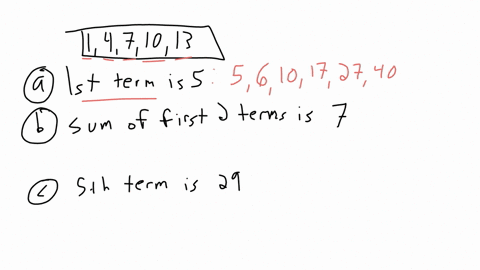 1, 4, 7, 10, 13
(a) 1st term is 5: 5, 6, 10, 17, 27, 40
(b) sum of first 2 terms is 7
(c) 5th term is 29